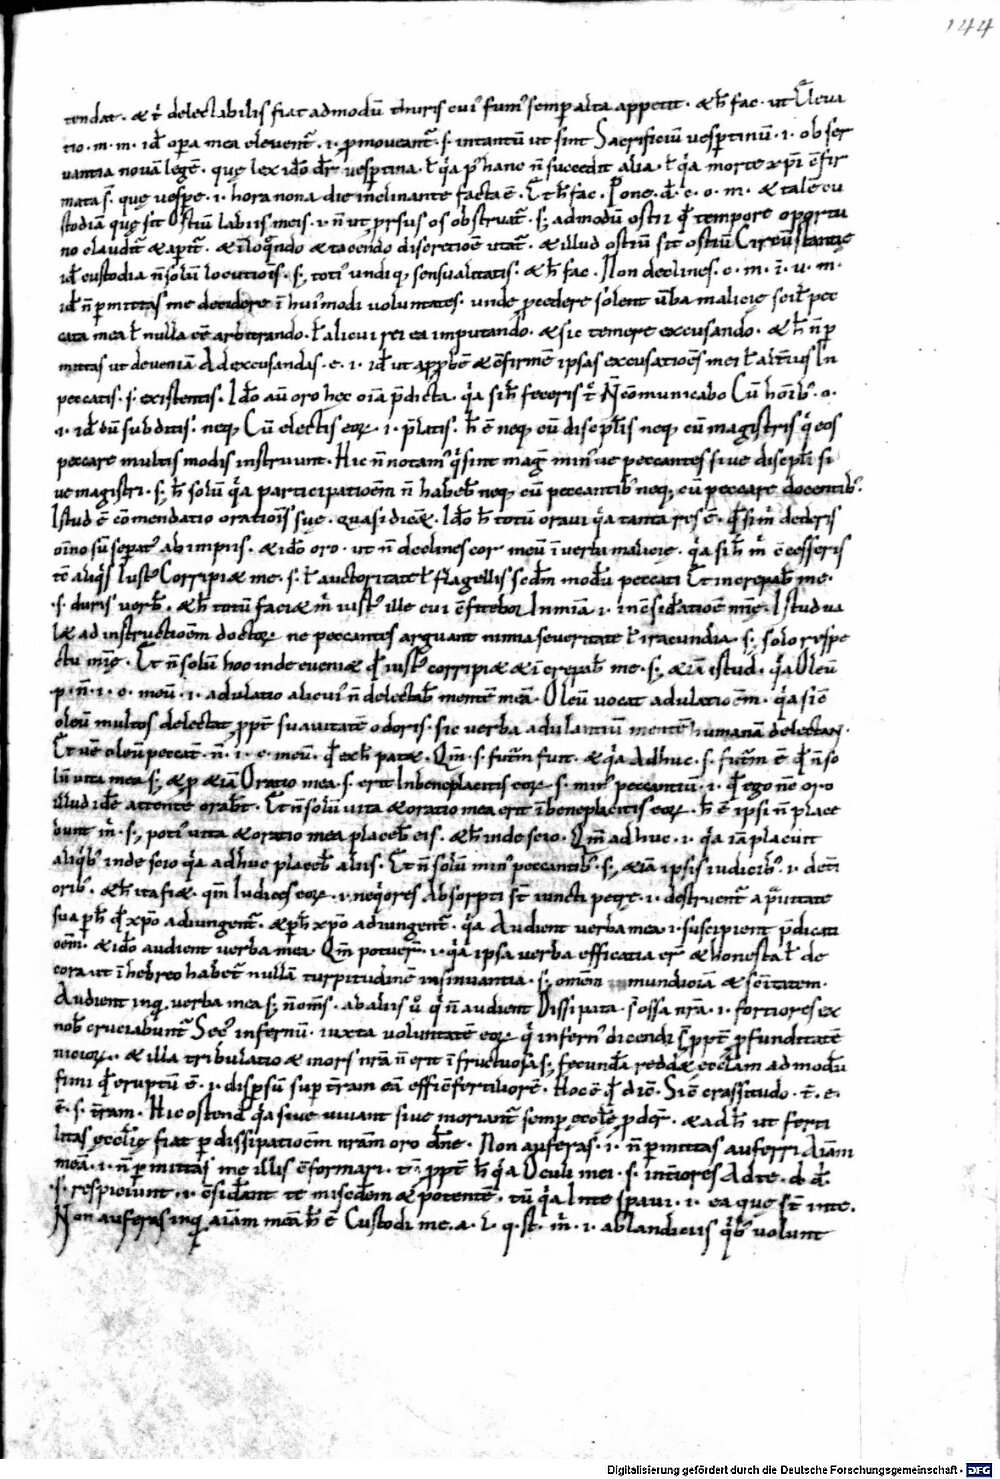 144
tendat. & t̄ delectabilis fiat admodū thuris cui' fum' semp alta appetit. & h̄ fac. ut Eleva
tio. m. m. id̄ opa mea elevent̄. i. pmoveant̄. s. intantū ut sint Sacrificiū vesptinū. i. obser
vantia novā legē. quę lex ido dr̄ vesptina. ł q̄a p' hanc n̄ succedit alia. ł q̄a morte xpī c̄fir
mata s̄. quę vespe. i. hora nona die inclinante facta ē. Et h̄ fac. Pone. d̄. c. o. m. & talē cu
stodiā quę sit Ostiū labiis meis. i. n̄ ut prsus os obstruat̄. s; admodū ostii q̄ tempore oportu
no claudit̄ & apit̄. & ī loq̄ndo & tacendo discretiōe utat̄. & illud ostiū sit ostiū Circūstantię
id̄ custodia n̄ solū locutiōis. s; toti' undiq; sensualitatis. & h̄ fac. Non declines. c. m. ī. v. m.
id̄ n̄ pmittas me decidere ī hui'modi voluntates. unde pcedere solent v̄ba malicię scil; pec
cata mea ł nulla eē arbitrando. ł alicui rei ea imputando. & sic temere excusando. & h̄ n̄ p
mittas ut deveniā Ad excusandas. e. i. id̄ ut appbē & c̄firmē ipsas excusatiōes mei ł alt̄ius In
peccatis. s. existentis. Ido aū oro hec oīa p̄dicta. q̄a si h̄ feceris t̄ N̄ cōmunicabo Cū hōib'. o.
i. id̄ cū subditis. neq; Cū electis eoꝝ. i. p̄latis. h̄ ē neq; cū discip̄lis neq; cū magistris q̄ eos
peccare multis modis instruunt. Hic n̄ notam' q̄ sint maḡ min' ve peccantes sive discip̄li si
ve magistri. s; h̄ solū q̄a participatiōem n̄ habeb̄ neq; cū peccantib' neq; cū peccare docentib'.
Istud ē cōmendatio oratiōis suę. quasi dic&. Ido h̄ totū oravi q̄a tanta res ē. q̄ si m̄ dederis
oīno sū sepat' ab impiis. & ido oro. ut n̄ declines cor meū ī verba malicię. q̄a si h̄ m̄ c̄cesseris
tē aliq̄s Iust' Corripi& me. s. ł auctoritate ł flagellis sc̄dm modū peccati Et increpab̄ me.
.s. duris verb'. & h̄ totū faci& m̄ iust' ille cui c̄fitebor In mīa i. in c̄sid̄atiōe mīę. Istud va
l& ad instructiōem doctoꝝ. ne peccantes arguant nimia severitate ł iracundia. s; solo respe
ctu mīę. Et n̄ solū hoc inde eveni& q̄ iust' corripi& & īcrepab̄ me. s; & iā istud. q̄a Oleū
.p. n̄. i. c. meū. i. adulatio alicui' n̄ delectab̄ mentē meā. Oleū vocat adulatiōem. q̄a sic
oleū multos delectat ppt̄ suavitatē odoris. sic verba adulantiū mentē humanā delectan.
Et vē oleū peccat̄. n̄. i. c. meū. q̄ ... pat&. Qm̄. s. fut̄m funt. & q̄a Adhuc. s. fut̄m ē q̄ n̄ so
lū vita mea s; & p & iā Oratio mea. s. erit In beneplacitis eoꝝ. s. min' peccantiū. i. q̄ ego nc̄ oro
illud ide attente orab̄t. Et n̄ solū vita & oratio mea erit ī beneplacitis eoꝝ. h̄ ē ipsi n̄ place
bunt m̄. s; poti' vita & oratio mea placeb̄ eis. & h̄ inde scio. Qm̄ adhuc. i. q̄a iā placūt
aliq̄b' inde scio q̄a adhuc placeb̄ aliis. Et n̄ solū min' peccantib'. s; & iā ipsis iudicib'. i. det̄i
orib'. & h̄ ita fi&. qm̄ Iudices eoꝝ. i. neq̄ores Absorpti st̄ iuncti petrę. i. destruent̄ a pvitate
sua p h̄ q̄ xpō adiungent̄. & p h̄ xpō adiungent̄. q̄a Audient verba mea. i. suscipient p̄dicati
ōem. & ido audient verba mea. Qm̄ potuer̄. i. q̄a ipsa verba efficatia er̄ & honesta ł de
cora ut ī hebreo habet̄ nullā turpitudinē insinuantia. s; omēm mundiciā & sc̄itatem.
Audient inq̄ verba mea s; n̄ om̄s. ab aliis v̊ q̄ n̄ audient Dissipata s' ossa nr̄a. i. fortiores ex
nob' cruciabunt̄ Sec' infernū. iuxta voluntatē eoꝝ q̄ infern' dicendi s̄ ppt̄ pfunditatē
nicioꝝ. & illa tribulatio & mors nr̄a n̄ erit īfructuosa s; fecundā redd& ecclam ad modū
fimi q̄ eruptū ē. i. dispsū sup t̄ram eā effic̄ fertiliorē. Hoc ē q̄ dic̄. Sic̄ crassitudo. t̄. e.
ē. s. t̄ram. Hic ostend̄ q̄a sive vivant sive moriant̄ semp ecclę pder̄. & ad h̄ ut ferti
litas ęcclię fiat p dissipatiōem nr̄am oro dn̄e. Non auferas. i. n̄ pmittas auferri Aīam
meā. i. n̄ pmittas me illis c̄formari. t̄n ppt̄ h̄ q̄a Oculi mei. s. int̄iores Ad te. d. d̄.
.s. respiciunt. i. c̄sid̄ant te misc̄dem & potentē. tū q̄a In te spavi. i. ea quę st̄ in te.
Non auferas inq̄ aīam meā h̄ ē Custodi me. a. l. q. st̄. m̄. i. ab landiciis q̄b' volunt
Digitalisierung gefördert durch die Deutsche Forschungsgemeinschaft - DFG